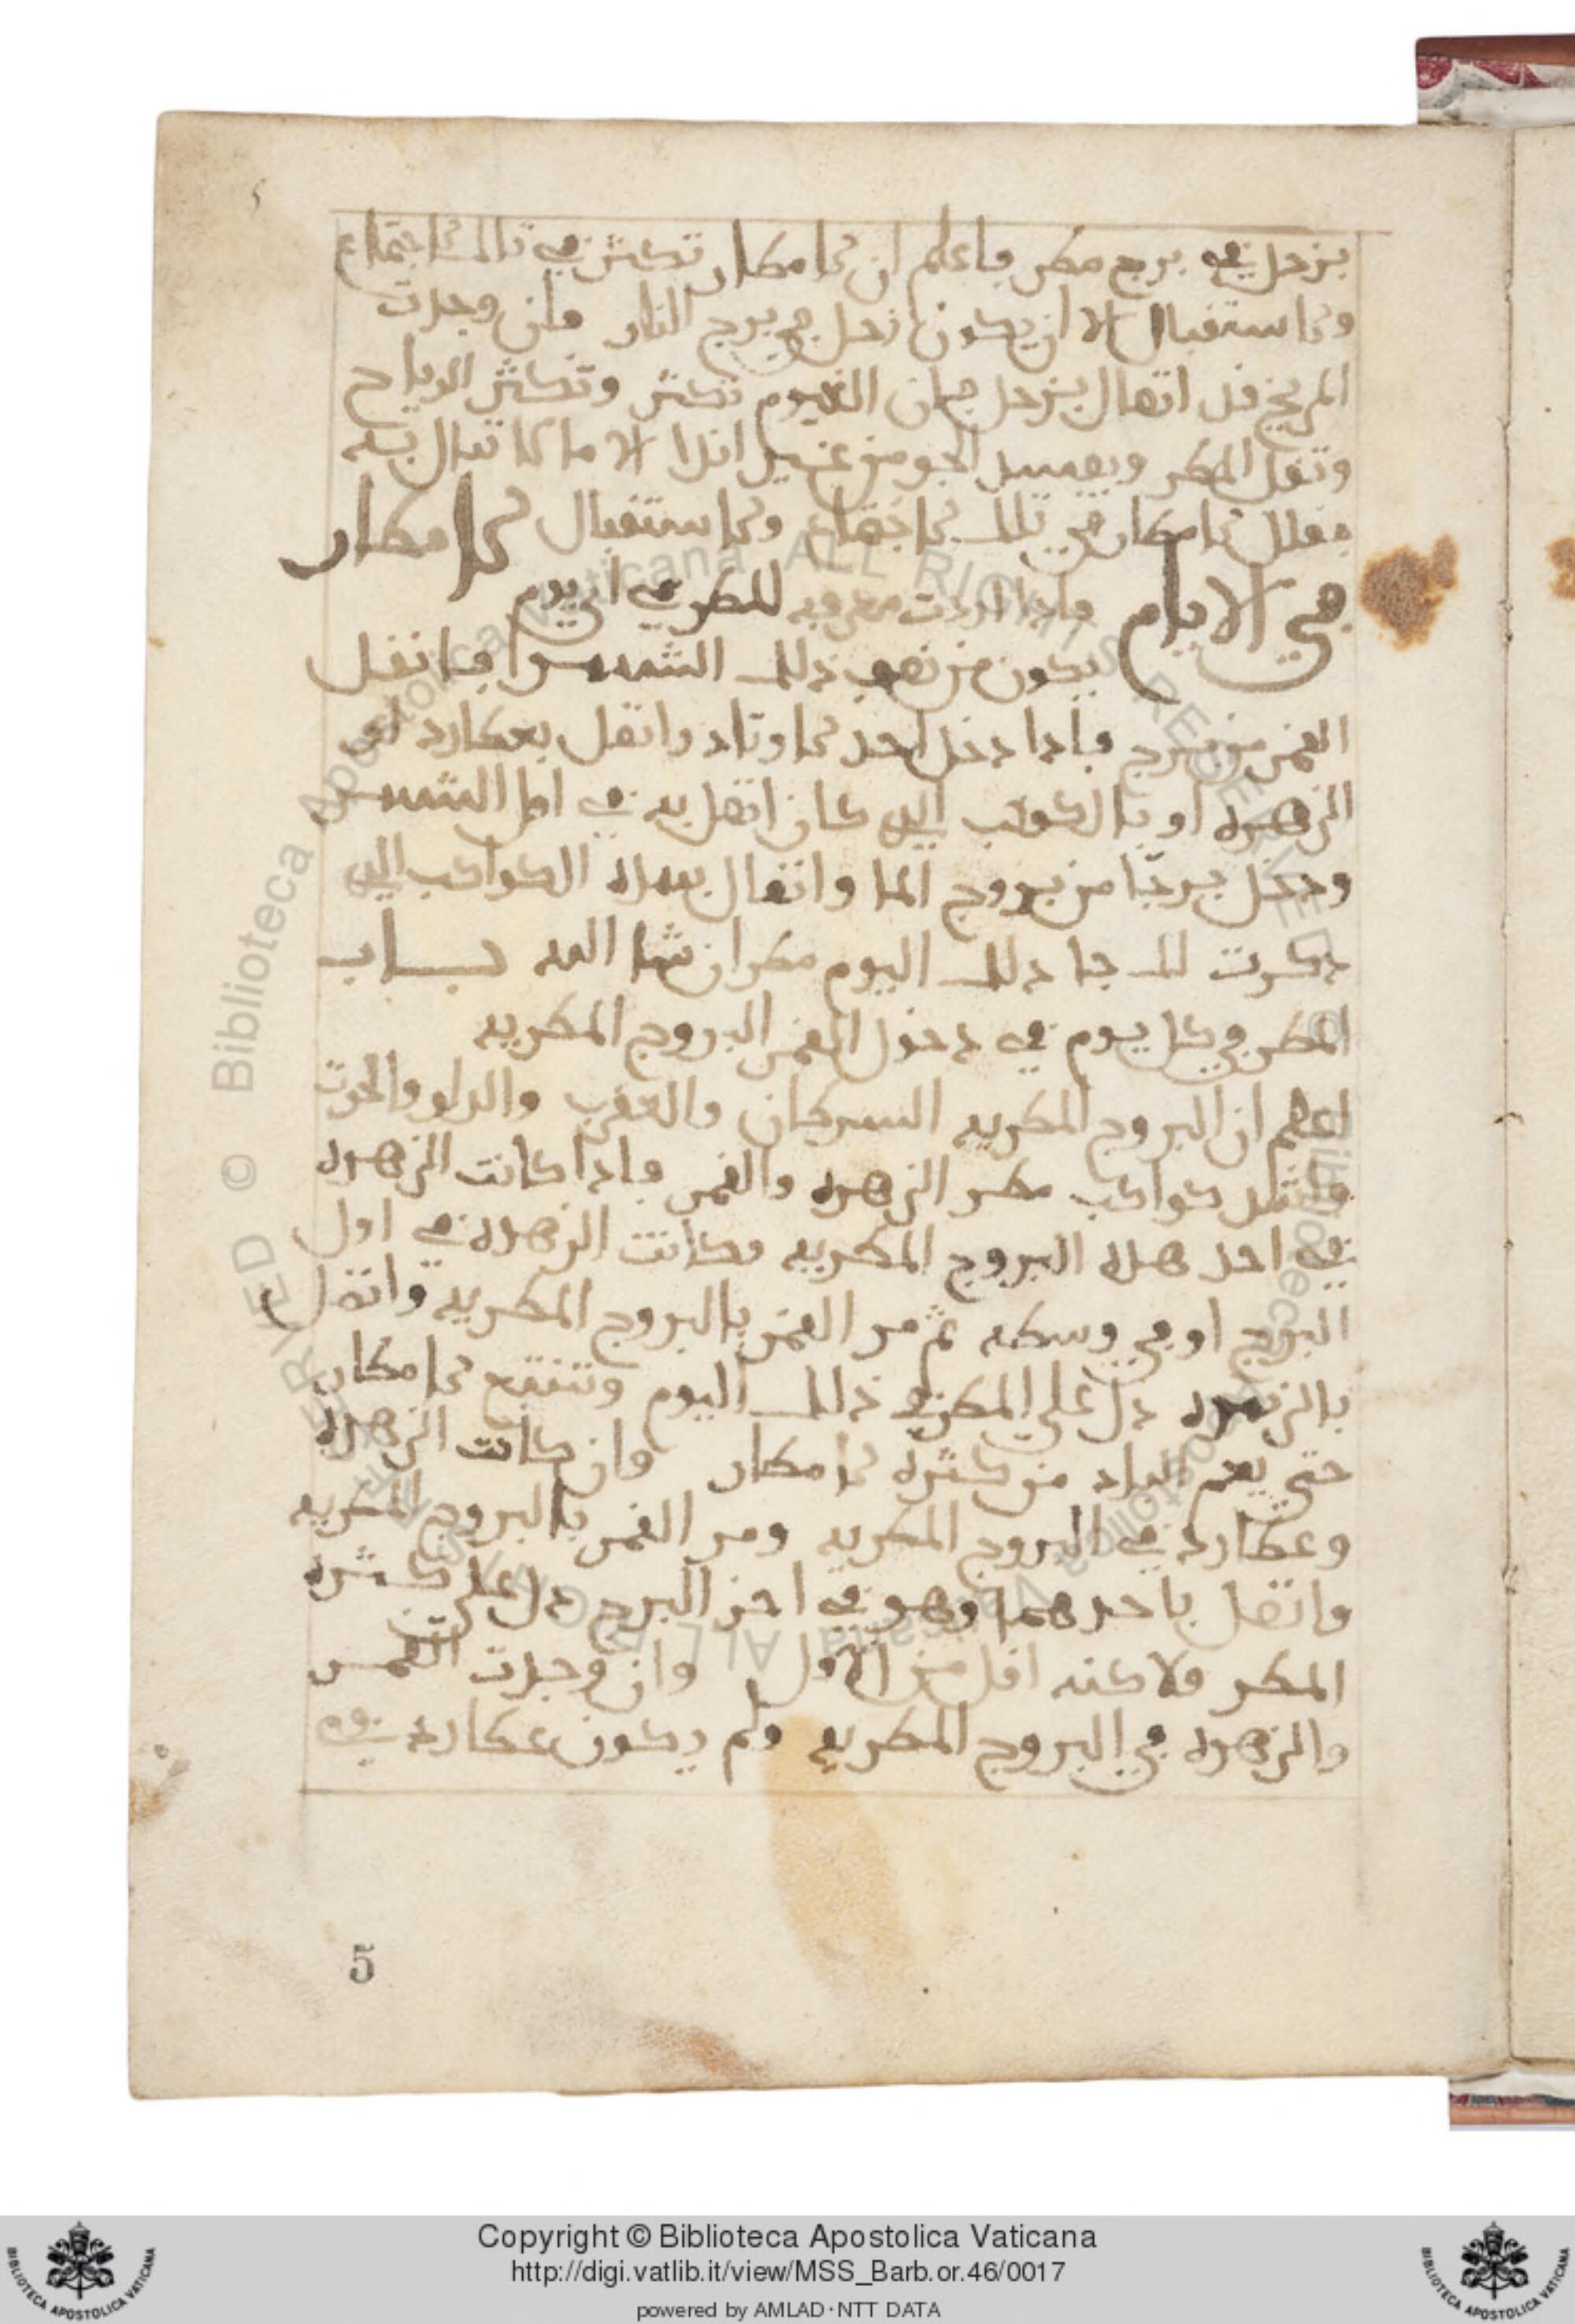 5
بزحل في برج مطر فاعلم ان الامطار تكثر في تلك الاجتماع
والاستقبال الا ان يكون زحل في برج النار فان وجدت
المريخ قد اتصال بزحل فان الغيوم تكثر وتكثر الرياح
وتقل المطر ويفسد الجو من غير اندا الا ما كا تصال به
فقلل الامطار في تلك الاجتماع والاستقبال الامطار
في الايام فاذا اردت معرفه المطر في اي يوم
يكون من نصف ذلك الشهر فانقل
القمر من برج فاذا دخل احد الاوتاد واتصل بعطارد او
الزهره او بالكوكب الذي كان اتصل به في اول الشهر
ودخل برجا من بروج الما واتصال بهذه الكواكب الذي
ذكرت لك جا ذلك اليوم مطر ان شا الله باب
المطر في كل يوم في دخول القمر البروج المطريه
اعلم ان البروج المطريه السرطان والعقرب والدلو والحوت
كواكب مطر الزهره والقمر فاذا كانت الزهره
في احد هذه البروج المطريه وكانت الزهره في اول
البرج او في وسطه ثم مر القمر بالبروج المطريه واتصل
بالزهره دل على المطر في ذلك اليوم وتنفتح الامطار
حتى يعم البلد من كثرة الامطار وان كانت الزهره
وعطارد في البروج المطريه ومر القمر بالبروج المطريه
واتصل باحدهما وهو في اخر البرج دل على كثره
المطر ولاكنه اقل من الاول وان وجدت الشمس
والزهره في البروج المطريه ولم يكون عطارد في
5
© Biblioteca Apostolica Vaticana ALL RIGHTS RESERVED
Copyright © Biblioteca Apostolica Vaticana
http://digi.vatlib.it/view/MSS_Barb.or.46/0017
powered by AMLAD·NTT DATA
BIBLIOTECA APOSTOLICA VATICANA
BIBLIOTECA APOSTOLICA VATICANA